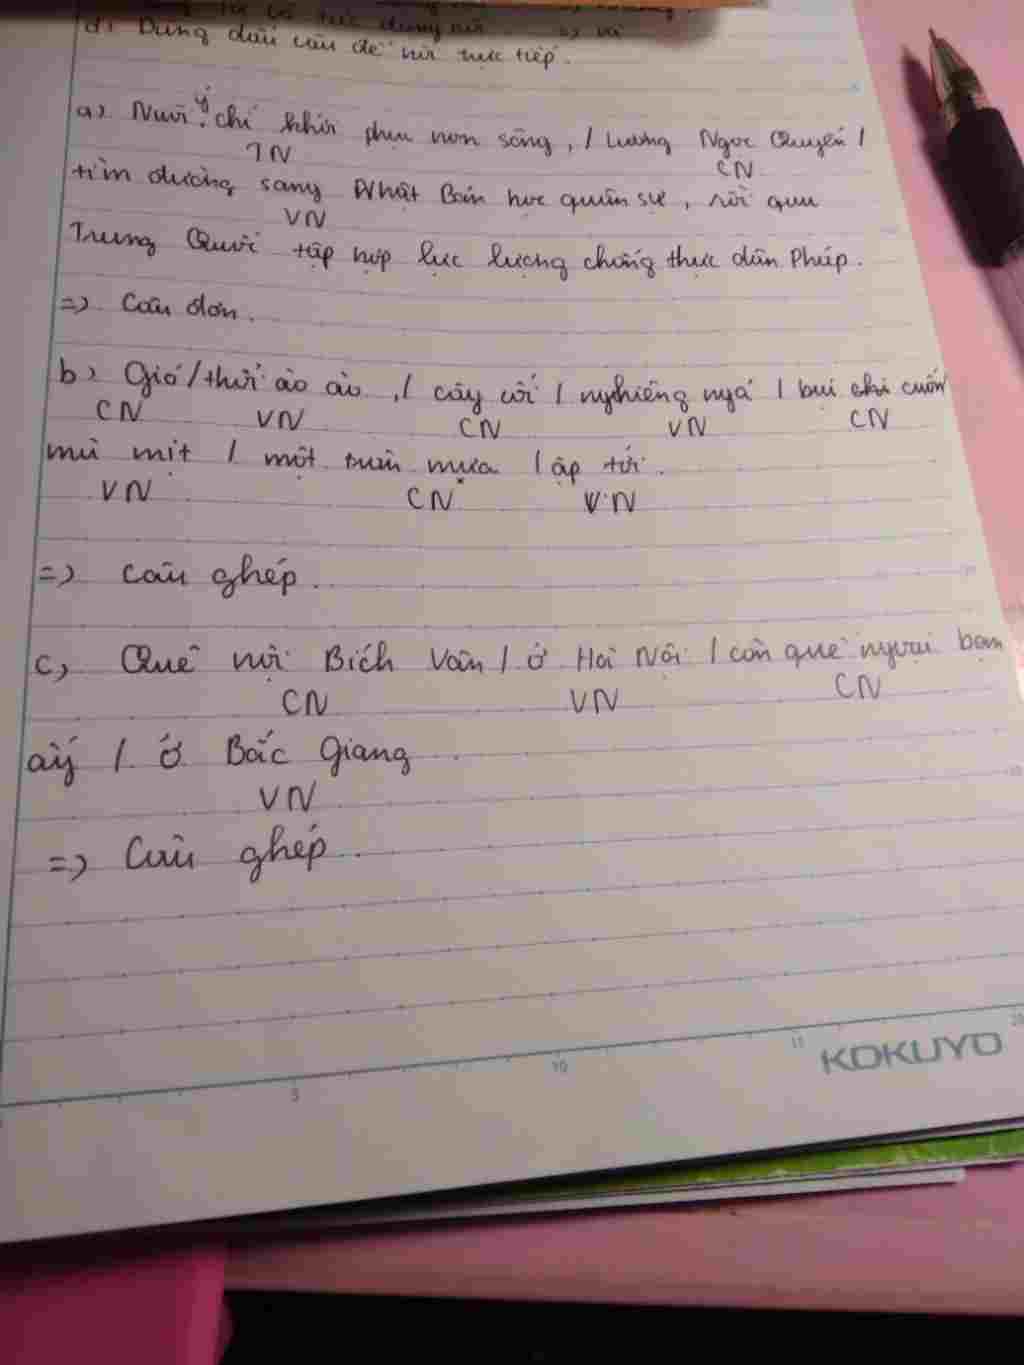 d) Dùng dấu câu để nối trực tiếp.
a) Nuôi ý chí khôi phục non sông, / Lương Ngọc Quyến /
TN CN
tìm đường sang Nhật Bản học quân sự, rồi qua
VN
Trung Quốc tập hợp lực lượng chống thực dân Pháp.
=> Câu đơn.
b) Gió / thổi ào ào, / cây cối / nghiêng ngả / bụi cuốn
CN VN CN VN CN
mù mịt / một trận mưa / ập tới.
VN CN VN
=> câu ghép.
c, Quê nội Bích Vân / ở Hà Nội / còn quê người bạn
CN VN CN
ấy / ở Bắc Giang
VN
=> Câu ghép.
KOKUYO
5 10 15 20